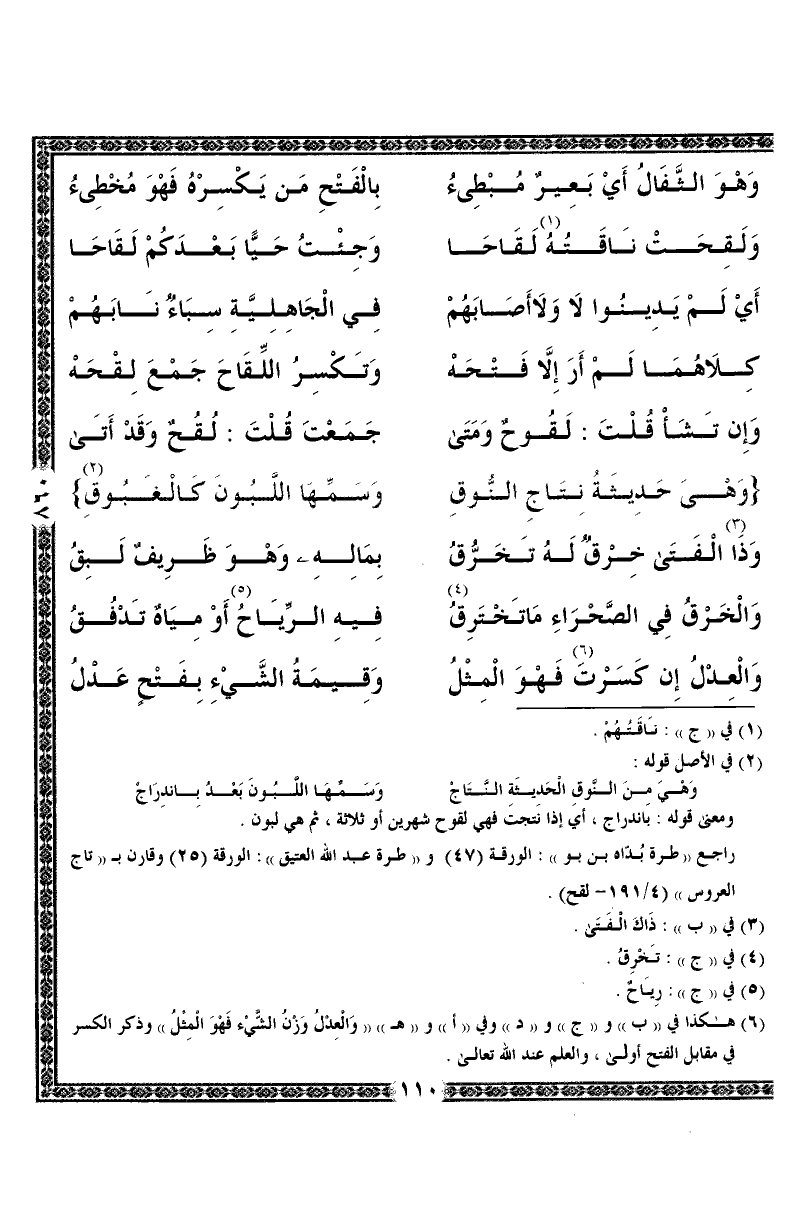 وَهْوَ الثَّفَالُ أَيْ بَعِيرٌ مُبْطِىءُ بِالْفَتْحِ مَن يَكْسِرْهُ فَهْوَ مُخْطِىءُ
وَلَقِحَتْ نَاقَتُهُ (١) لَقَاحَا وَجِئْتُ حَيًّا بَعْدَكُمْ لَقَاحَا
أَيْ لَمْ يَدِينُوا لَا وَلَا أَصَابَهُمْ فِي الْجَاهِلِيَّةِ سِبَاءٌ نَابَهُمْ
كِلَاهُمَا لَمْ أَرَ إِلَّا فَتْحَهْ وَتَكْسِرُ اللِّقَاحَ جَمْعَ لِقْحَهْ
وَإِن تَشَأْ قُلْتَ : لَقُوحٌ وَمَتَىٰ جَمَعْتَ قُلْتَ : لُقُحٌ وَقَدْ أَتَىٰ
{وَهْيَ حَدِيثَةُ نِتَاجِ النُّوقِ وَسَمِّهَا اللَّبُونَ كَالْغَبُوقِ} (٢)
وَذَا (٣) الْفَتَىٰ خِرْقٌ لَهُ تَخَرُّقُ بِمَالِهِ وَهْوَ ظَرِيفٌ لَبِقُ
وَالْخَرْقُ فِي الصَّحْرَاءِ مَاتَخْتَرِقُ (٤) فِيهِ الرِّيَاحُ (٥) أَوْ مِيَاهٌ تَدْفُقُ
وَالْعِدْلُ إِن كَسَرْتَ (٦) فَهْوَ الْمِثْلُ وَقِيمَةُ الشَّيْءِ بِفَتْحٍ عَدْلُ
٠٦٧
(١) في « ج » : نَاقَتُهُمْ .
(٢) في الأصل قوله :
وَهْيَ مِنَ النُّوقِ الْحَدِيثَةِ النَّتَاجْ وَسَمِّهَا اللَّبُونَ بَعْدُ بِانْدِرَاجْ
ومعنى قوله : باندراج ، أي إذا نتجت فهي لقوح شهرين أو ثلاثة ، ثم هي لبون .
راجع « طرة بُدّاه بن بو » : الورقة (٤٧) و « طرة عبد الله العتيق » : الورقة (٢٥) وقارن بـ « تاج
العروس » (٤/١٩١ – لقح) .
(٣) في « ب » : ذَاكَ الْفَتَىٰ .
(٤) في « ج » : تَخْرِقُ .
(٥) في « ج » : رِيَاحٌ .
(٦) هـٰكذا في « ب » و « ج » و « د » وفي « أ » و « هـ » « وَالْعِدْلُ وَزْنُ الشَّيْء فَهْوَ الْمِثْلُ » وذكر الكسر
في مقابل الفتح أولىٰ ، والعلم عند الله تعالىٰ .
١١٠